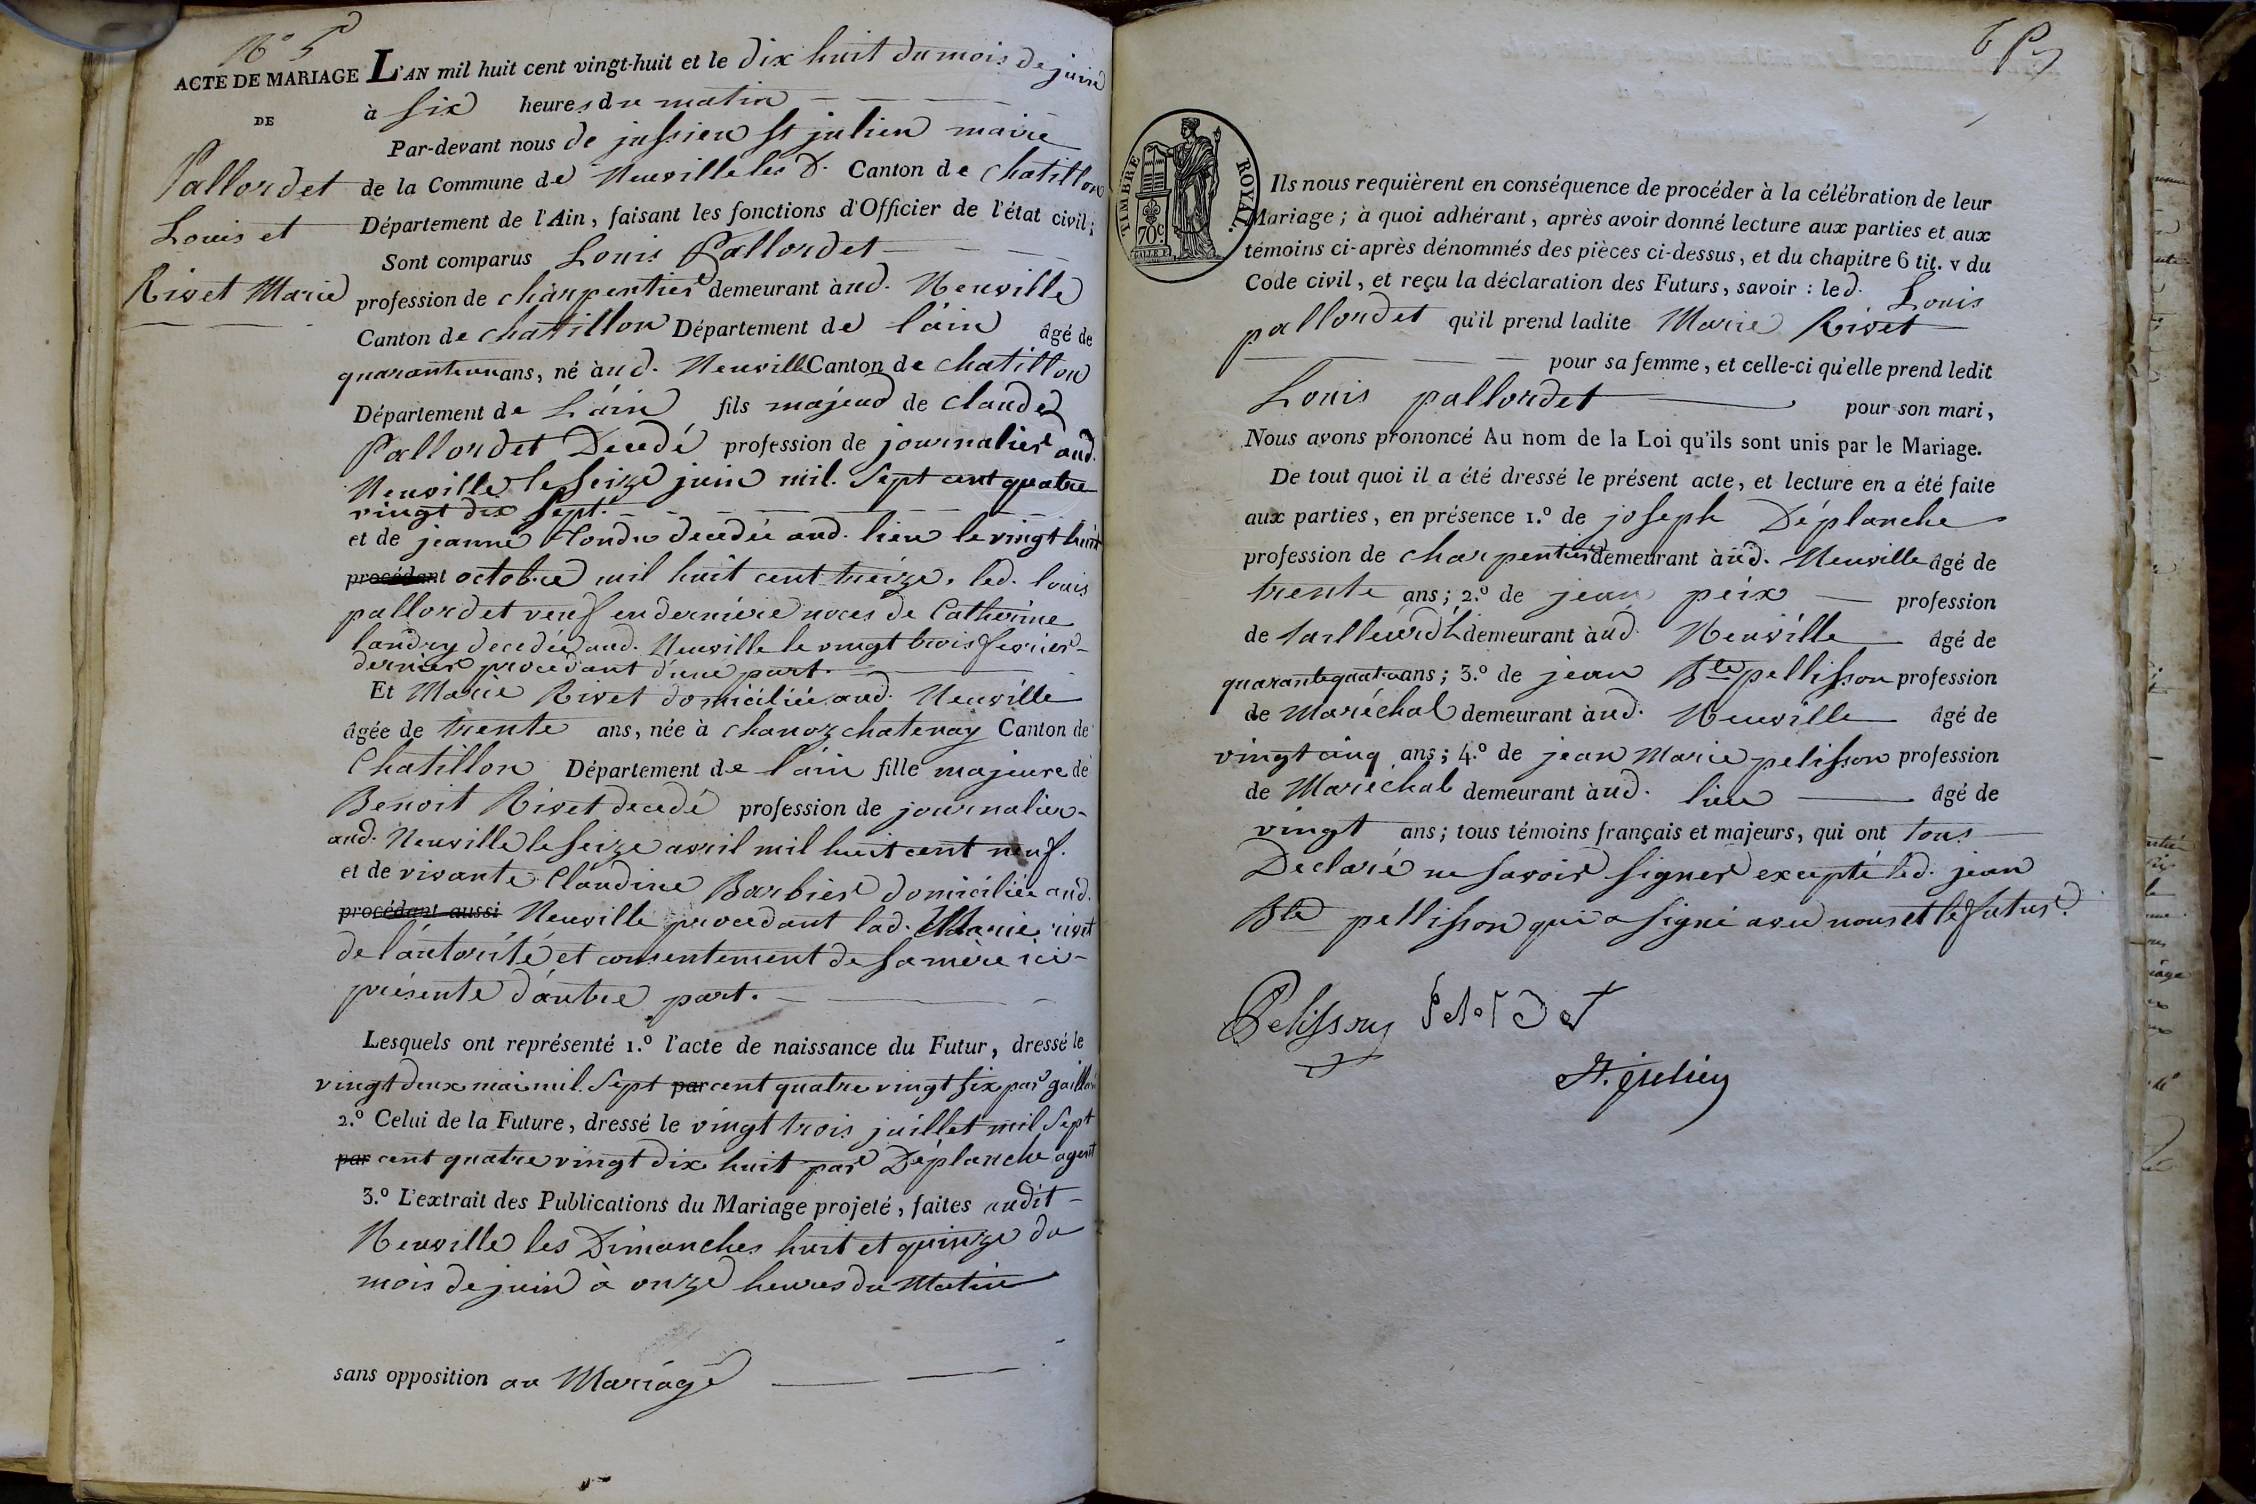 N° 5
ACTE DE MARIAGE
DE
Pallordet
Louis et
Rivet Marie
L'AN mil huit cent vingt-huit et le dix huit du mois de juin
à six heures du matin
Par-devant nous de jussieu st julien maire
de la Commune de Neuville les D. Canton de chatillon
Département de l'Ain, faisant les fonctions d'Officier de l'état civil;
Sont comparus Louis Pallordet
profession de charpentier demeurant aud. Neuville
Canton de chatillon Département de l'ain âgé de
ans, né aud. Neuville Canton de chatillon
Département de L'ain fils majeur de claude
Pallordet Decedé profession de journalier aud.
Neuville le seize juin mil. sept cent quatre
vingt dix sept.
et de jeanne decedée aud. lieu le vingt huit
procédant octobre mil huit cent treize, led. louis
pallordet veuf en derniere noces de Catherine
landry decedée aud. Neuville le vingt trois fevrier
dernier procedant d'une part.
Et Marie Rivet domiciliée aud. Neuville
âgée de trente ans, née à chanoz chatenay Canton de
Chatillon Département de l'ain fille majeure de
Benoit Rivet decedé profession de journalier
aud. Neuville le seize avril mil huit cent neuf.
et de vivante Claudine Barbier domiciliée aud.
procédant aussi Neuville procedant lad. Marie rivet
de l'autorité et consentement de sa mère ici
présente d'autre part.
Lesquels ont représenté 1.º l'acte de naissance du Futur, dressé le
vingt deux mai mil. sept par cent quatre vingt six par gaillard
2.º Celui de la Future, dressé le vingt trois juillet mil sept
par cent quatre vingt dix huit par Déplanche agent
3.º L'extrait des Publications du Mariage projeté, faites audit
Neuville les Dimanches huit et quinze du
mois de juin à onze heures du Matin
sans opposition au Mariage
TIMBRE ROYAL.
70c.
Ils nous requièrent en conséquence de procéder à la célébration de leur
Mariage; à quoi adhérant, après avoir donné lecture aux parties et aux
témoins ci-après dénommés des pièces ci-dessus, et du chapitre 6 tit. v du
Code civil, et reçu la déclaration des Futurs, savoir: led. Louis
pallordet qu'il prend ladite Marie Rivet
pour sa femme, et celle-ci qu'elle prend ledit
Louis pallordet pour son mari,
Nous avons prononcé Au nom de la Loi qu'ils sont unis par le Mariage.
De tout quoi il a été dressé le présent acte, et lecture en a été faite
aux parties, en présence 1.º de joseph Déplanche
profession de charpentier demeurant aud. Neuville âgé de
trente ans; 2.º de jean peix profession
de tailleur d'h demeurant aud. Neuville âgé de
quarante quatre ans; 3.º de jean Bte pellisson profession
de Maréchal demeurant aud. Neuville âgé de
vingt cinq ans; 4.º de jean Marie pelisson profession
de Maréchal demeurant aud. lieu âgé de
vingt ans; tous témoins français et majeurs, qui ont tous
Declaré ne savoir signer excepté led. jean
Bte pellisson qui a signé avec nous et le futur.
Pelisson
St. julien